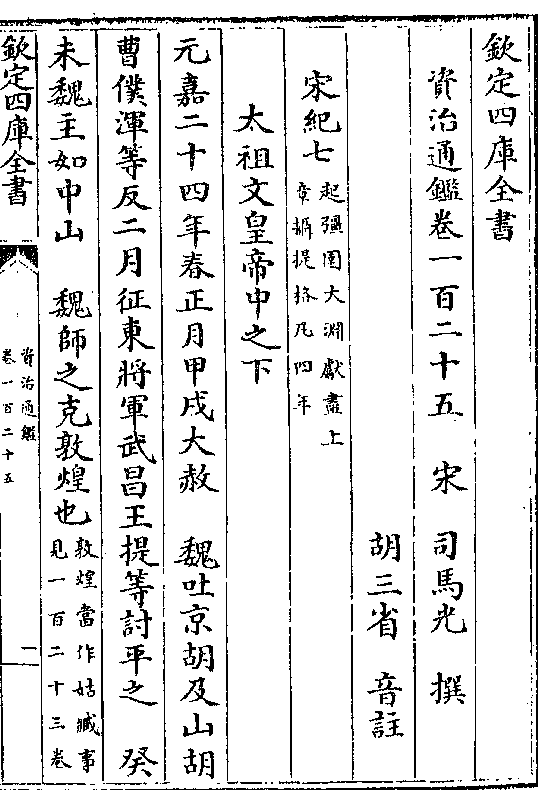 欽定四庫全書
資治通鑑卷一百二十五 宋 司馬光 撰
胡三省 音註
宋紀七 起彊圉大淵獻盡上
章攝提格凡四年
太祖文皇帝中之下
元嘉二十四年春正月甲戌大赦 魏吐京胡及山胡
曹僕渾等反二月征東將軍武昌王提等討平之 癸
未魏主如中山 魏師之克敦煌也 敦煌當作姑臧事
見一百二十三卷
欽定四庫全書
資治通鑑
卷一百二十五
一